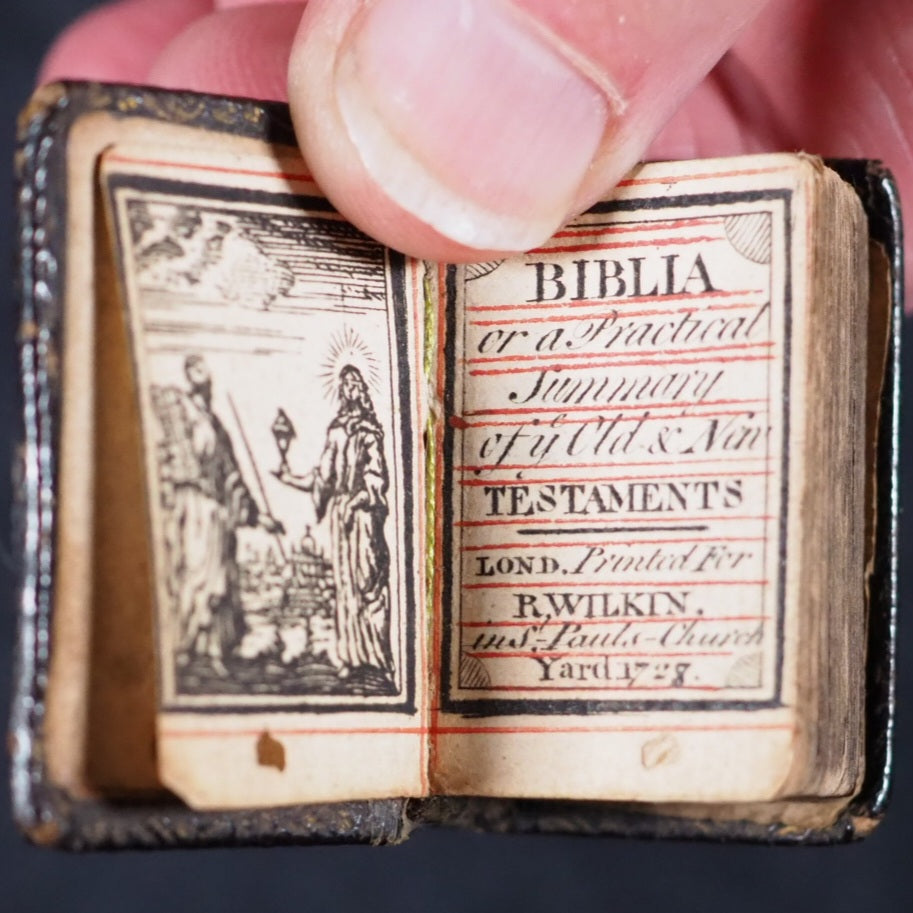 BIBLIA
or a Practical
Summary
of yͤ Old & New
TESTAMENTS
LOND. Printed For
R. WILKIN.
in Sᵗ. Pauls-Church
Yard 1728.